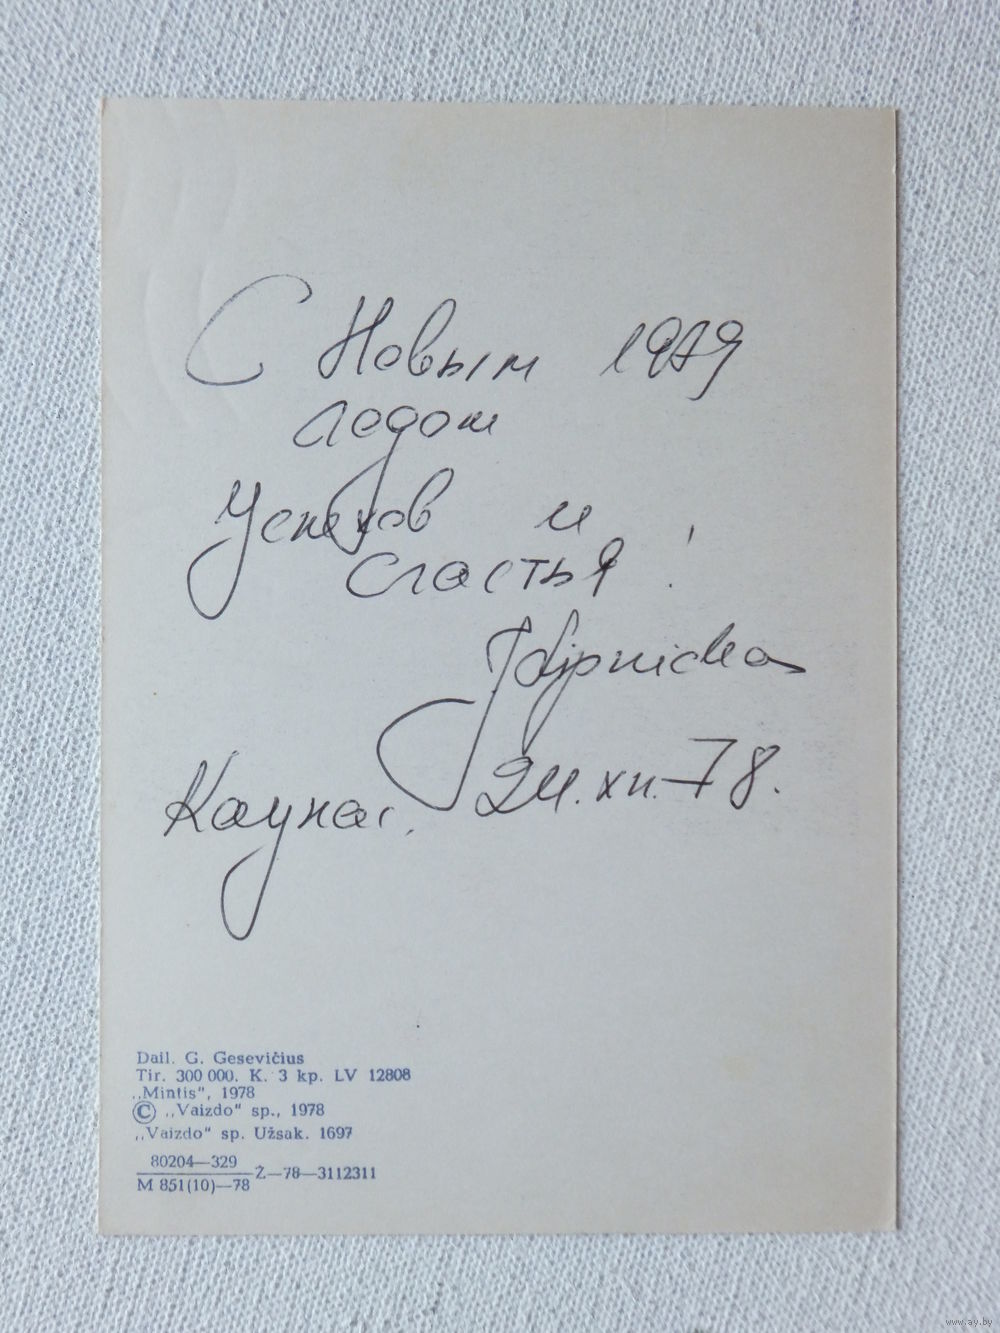 С Новым 1979
годом
Успехов и
счастья!
Каунас. 24.XII.–78.
Dail. G. Gesevičius
Tir. 300 000. K. 3 kp. LV 12808
„Mintis“, 1978
© „Vaizdo“ sp., 1978
„Vaizdo“ sp. Užsak. 1697
80204—329
M 851(10)—78
Ž—78—3112311
www.ay.by